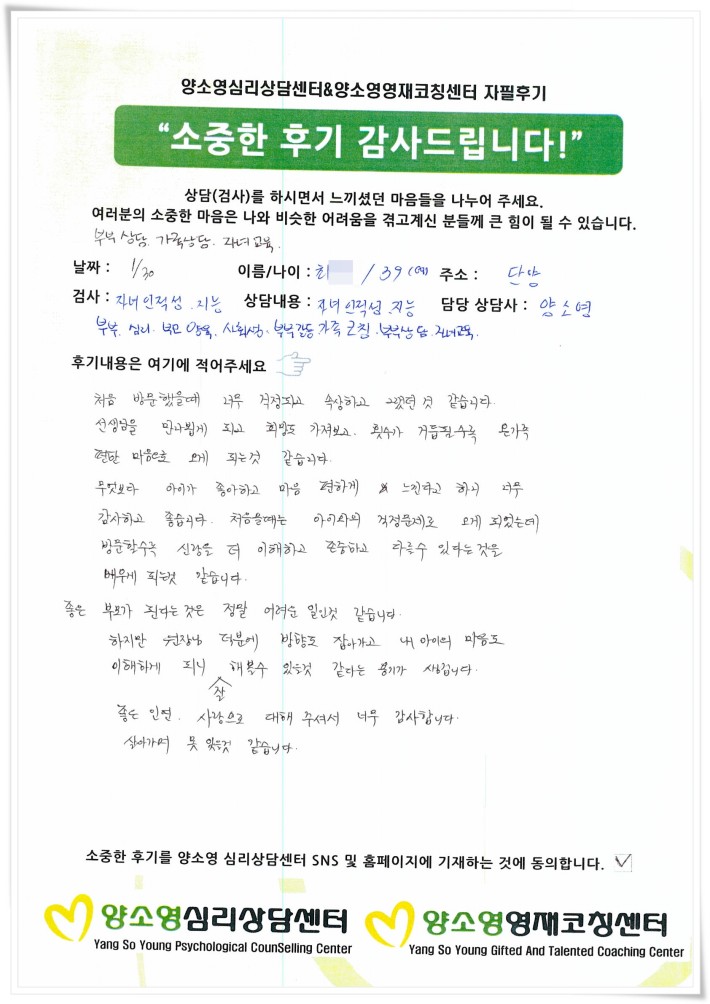 양소영심리상담센터&양소영영재코칭센터 자필후기
“소중한 후기 감사드립니다!”
상담(검사)를 하시면서 느끼셨던 마음들을 나누어 주세요.
여러분의 소중한 마음은 나와 비슷한 어려움을 겪고계신 분들께 큰 힘이 될 수 있습니다.
부부상담. 가족상담. 자녀교육.
날짜 : 1/30 이름/나이 : 최 / 39 (여) 주소 : 단양
검사 : 자녀 인적성. 지능 상담내용 : 자녀 인적성. 지능 담당 상담사 : 양소영
부부. 심리. 부모 양육. 사회성. 부부갈등 가족 코칭. 부부상담. 자녀교육.
후기내용은 여기에 적어주세요
처음 방문했을때 너무 걱정되고 속상하고 그랬던 것 같습니다.
선생님을 만나뵙게 되고 희망도 가져보고. 횟수가 거듭될수록 온가족
편한 마음으로 오게 되는것 같습니다.
무엇보다 아이가 좋아하고 마음 편하게 느낀다고 하니 너무
감사하고 좋습니다. 처음올때는 아이와의 걱정문제로 오게 되었는데
방문할수록 신랑을 더 이해하고 존중하고 다를수 있다는것을
배우게 되는것 같습니다.
좋은 부모가 된다는것은 정말 어려운 일인것 같습니다.
하지만 원장님 덕분에 방향도 잡아가고 내 아이의 마음도
이해하게 되니 잘 해볼수 있을것 같다는 용기가 생깁니다.
좋은 인연. 사랑으로 대해 주셔서 너무 감사합니다.
살아가며 못 잊을것 같습니다.
소중한 후기를 양소영 심리상담센터 SNS 및 홈페이지에 기재하는 것에 동의합니다.
양소영심리상담센터 양소영영재코칭센터
Yang So Young Psychological CounSelling Center Yang So Young Gifted And Talented Coaching Center